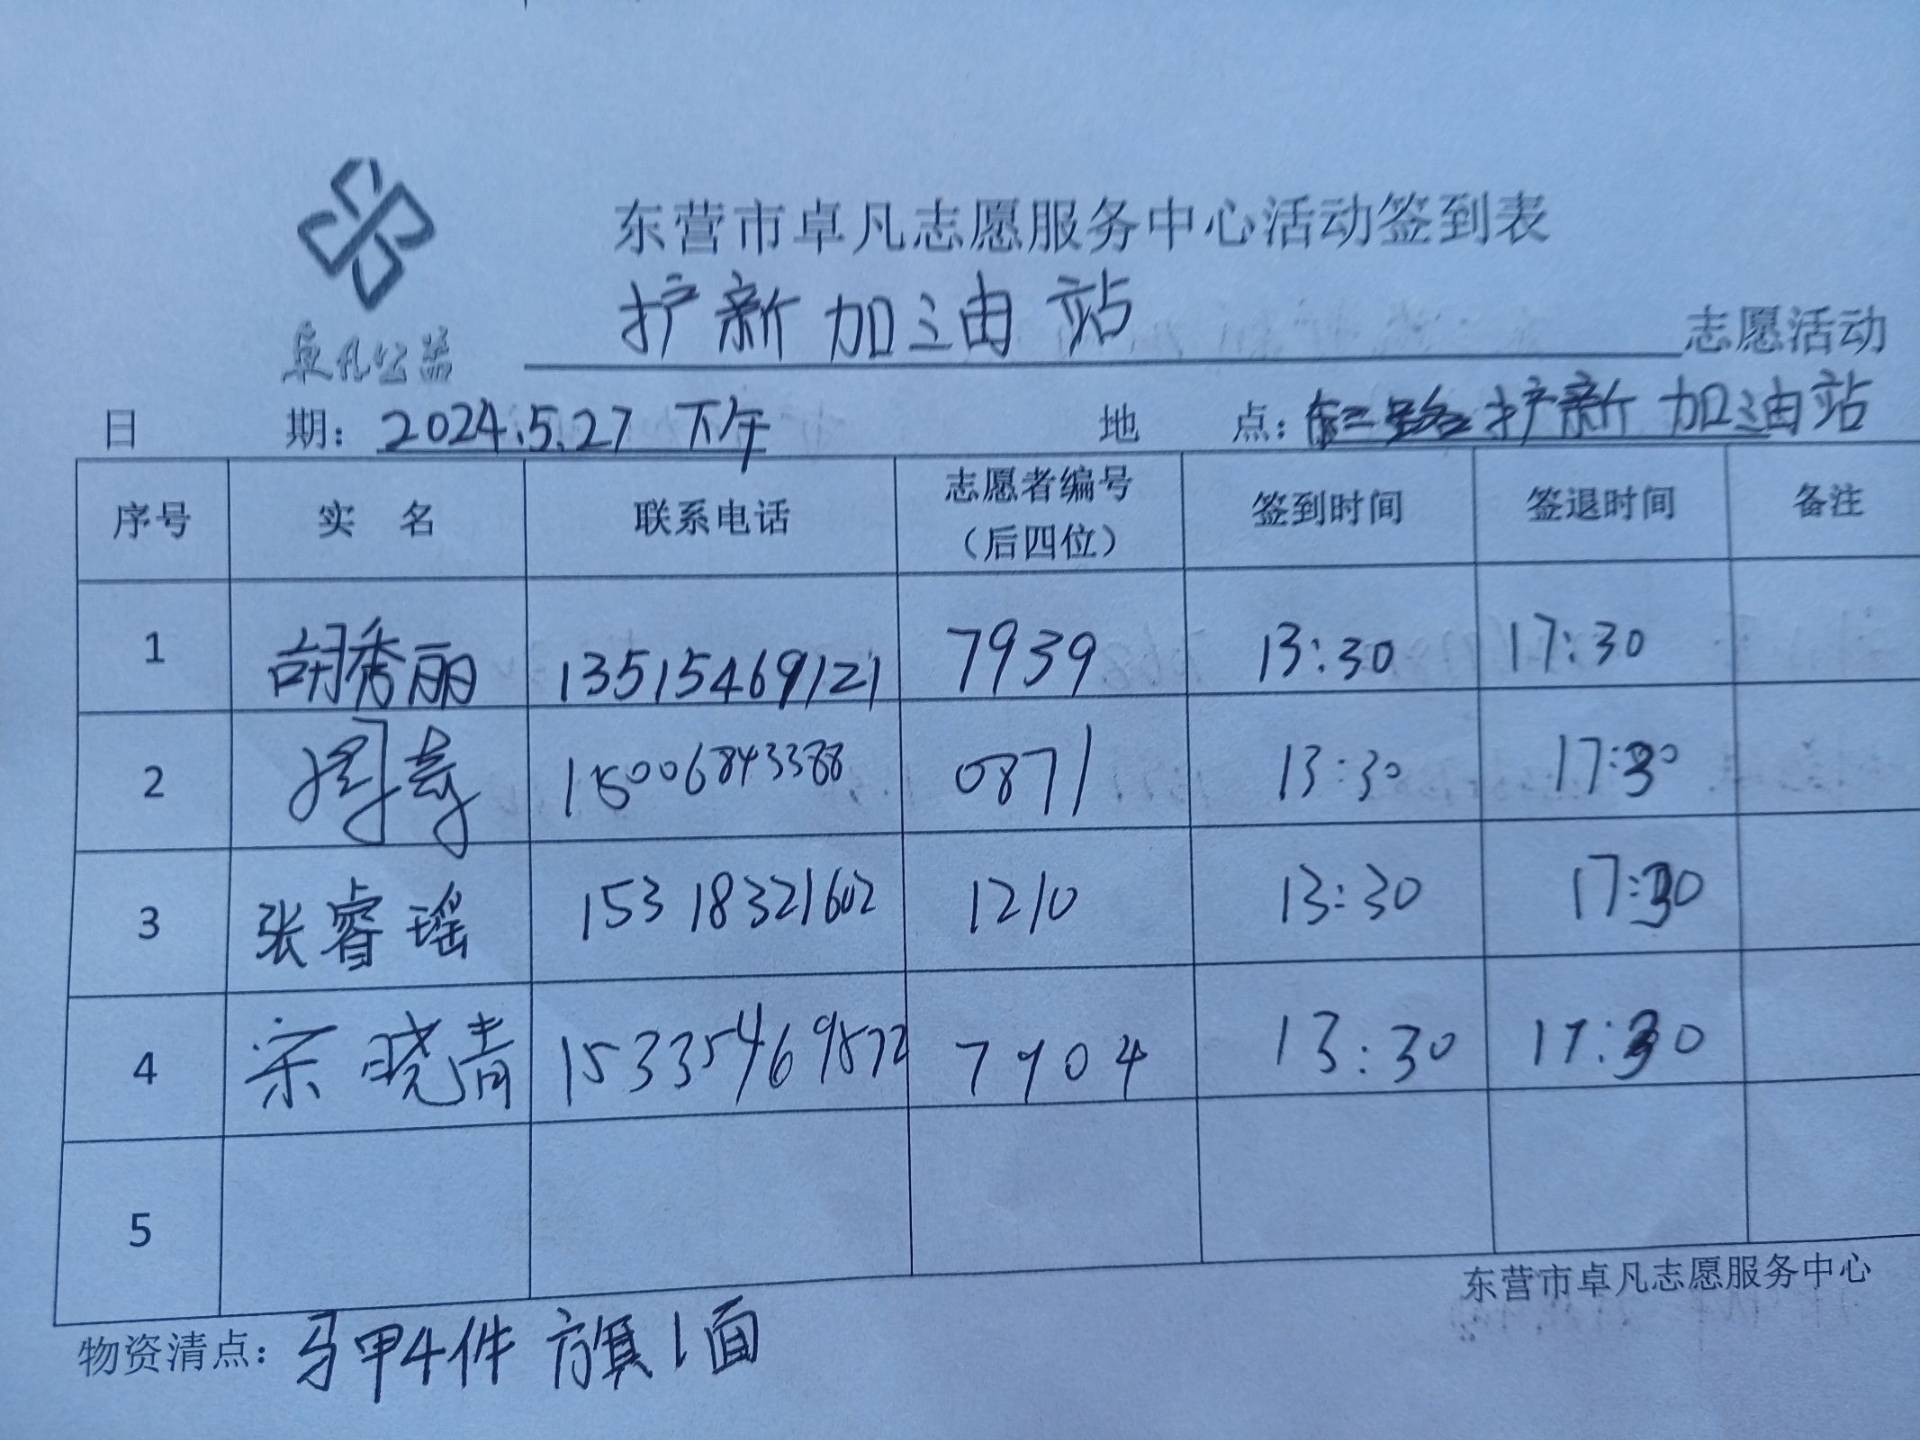 东营市卓凡志愿服务中心活动签到表
卓凡公益
护新加油站 志愿活动
日 期：2024.5.27 下午 地 点：护新加油站
序号 实 名 联系电话 志愿者编号（后四位） 签到时间 签退时间 备注
1 胡秀丽 13515469121 7939 13:30 17:30
2 15006843388 0871 13:30 17:30
3 张睿瑶 15318321602 1210 13:30 17:30
4 宋晓青 15335469572 7904 13:30 17:30
5
东营市卓凡志愿服务中心
物资清点：马甲4件 旗1面